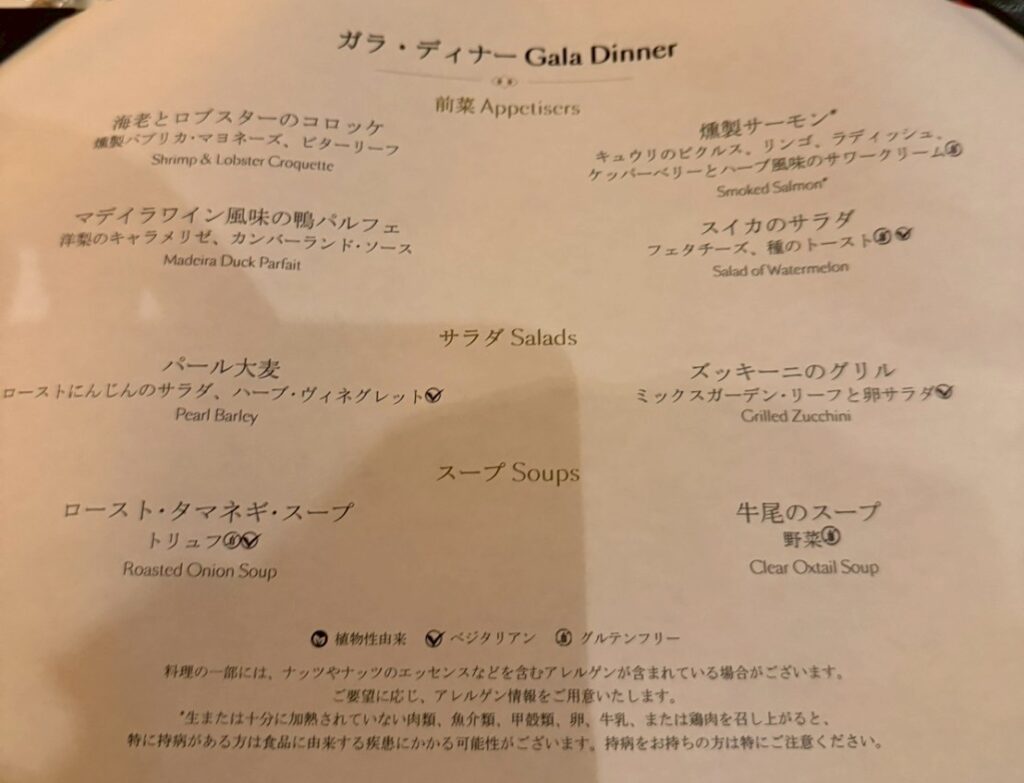 ガラ・ディナー Gala Dinner
前菜 Appetisers
海老とロブスターのコロッケ
燻製パプリカ・マヨネーズ、ビターリーフ
Shrimp & Lobster Croquette
燻製サーモン*
キュウリのピクルス、リンゴ、ラディッシュ、
ケッパーベリーとハーブ風味のサワークリーム
Smoked Salmon*
マデイラワイン風味の鴨パルフェ
洋梨のキャラメリゼ、カンバーランド・ソース
Madeira Duck Parfait
スイカのサラダ
フェタチーズ、種のトースト
Salad of Watermelon
サラダ Salads
パール大麦
ローストにんじんのサラダ、ハーブ・ヴィネグレット
Pearl Barley
ズッキーニのグリル
ミックスガーデン・リーフと卵サラダ
Grilled Zucchini
スープ Soups
ロースト・タマネギ・スープ
トリュフ
Roasted Onion Soup
牛尾のスープ
野菜
Clear Oxtail Soup
植物性由来 ベジタリアン グルテンフリー
料理の一部には、ナッツやナッツのエッセンスなどを含むアレルゲンが含まれている場合がございます。
ご要望に応じ、アレルゲン情報をご用意いたします。
*生または十分に加熱されていない肉類、魚介類、甲殻類、卵、牛乳、または鶏肉を召し上がると、
特に持病がある方は食品に由来する疾患にかかる可能性がございます。持病をお持ちの方は特にご注意ください。